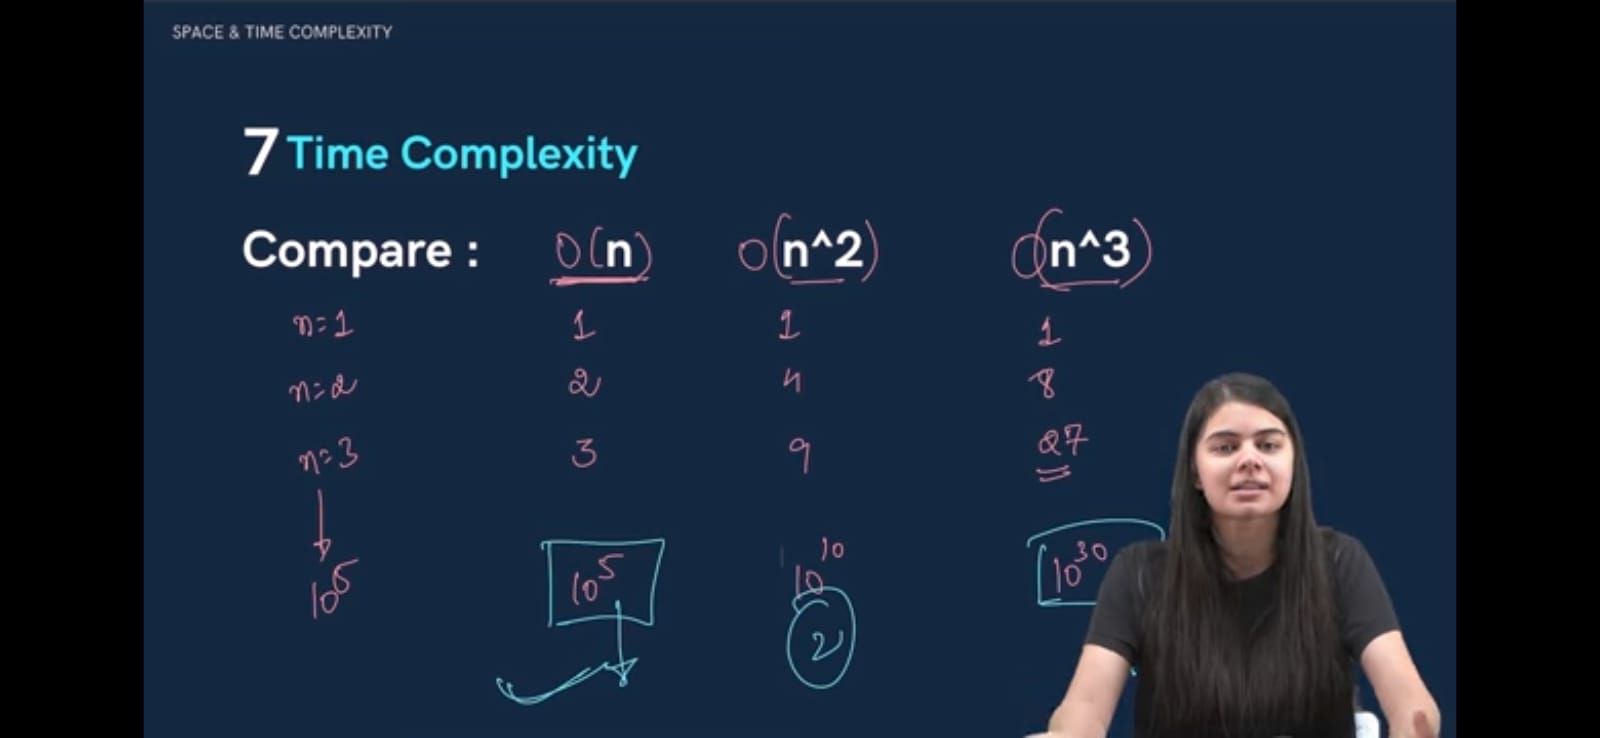 SPACE & TIME COMPLEXITY
7 Time Complexity
Compare : O(n) O(n^2) O(n^3)
n=1 1 1 1
n=2 2 4 8
n=3 3 9 27
10^5 10^5 10^10 10^30
2